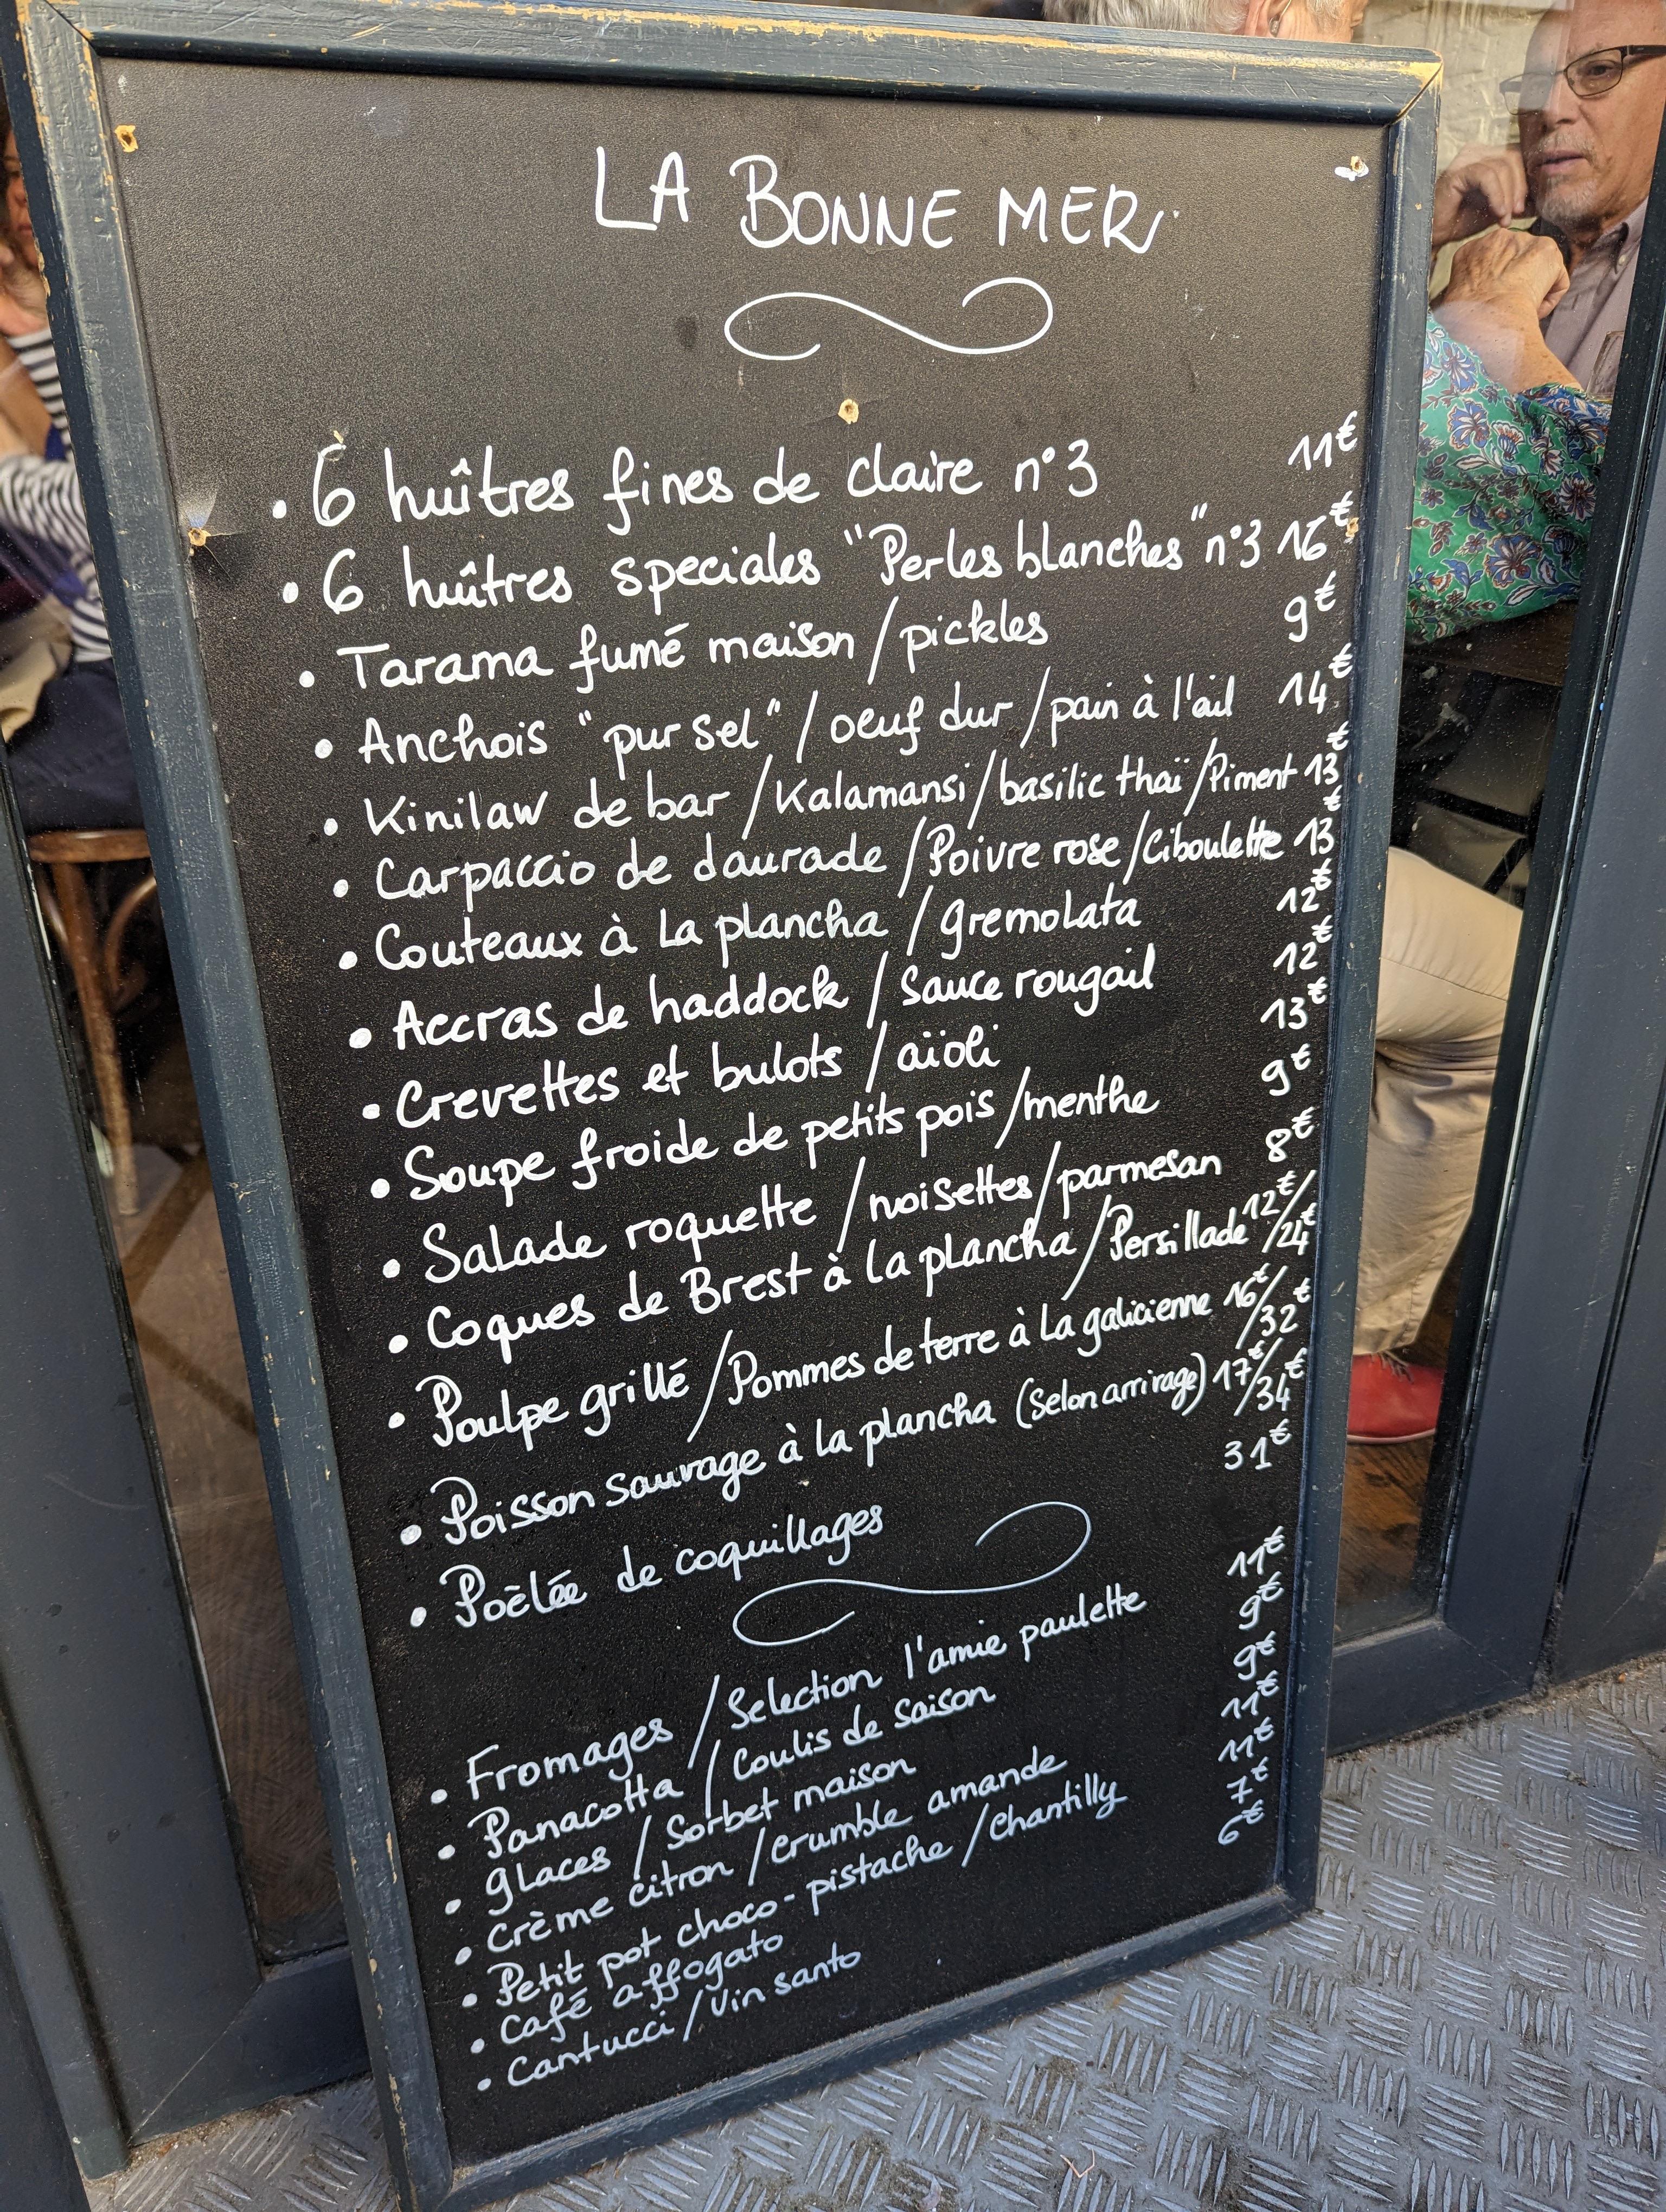 LA BONNE MER
• 6 huîtres fines de claire n°3 11€
• 6 huîtres speciales "Perles blanches" n°3 16€
• Tarama fumé maison / pickles 9€
• Anchois "pur sel" / oeuf dur / pain à l'ail 14€
• Kinilaw de bar / Kalamansi / basilic thaï / Piment 13€
• Carpaccio de daurade / Poivre rose / Ciboulette 13€
• Couteaux à la plancha / gremolata 12€
• Accras de haddock / Sauce rougail 12€
• Crevettes et bulots / aïoli 13€
• Soupe froide de petits pois / menthe 9€
• Salade roquette / noisettes / parmesan 8€
• Coques de Brest à la plancha / Persillade 12€/24€
• Poulpe grillé / Pommes de terre à la galicienne 16€/32€
• Poisson sauvage à la plancha (Selon arrivage) 17€/34€
• Poèlée de coquillages 31€
• Fromages / Selection l'amie paulette 11€
• Panacotta / Coulis de saison 9€
• glaces / Sorbet maison 9€
• Crème citron / crumble amande 11€
• Petit pot choco-pistache / chantilly 11€
• Café affogato 7€
• Cantucci / Vin santo 6€